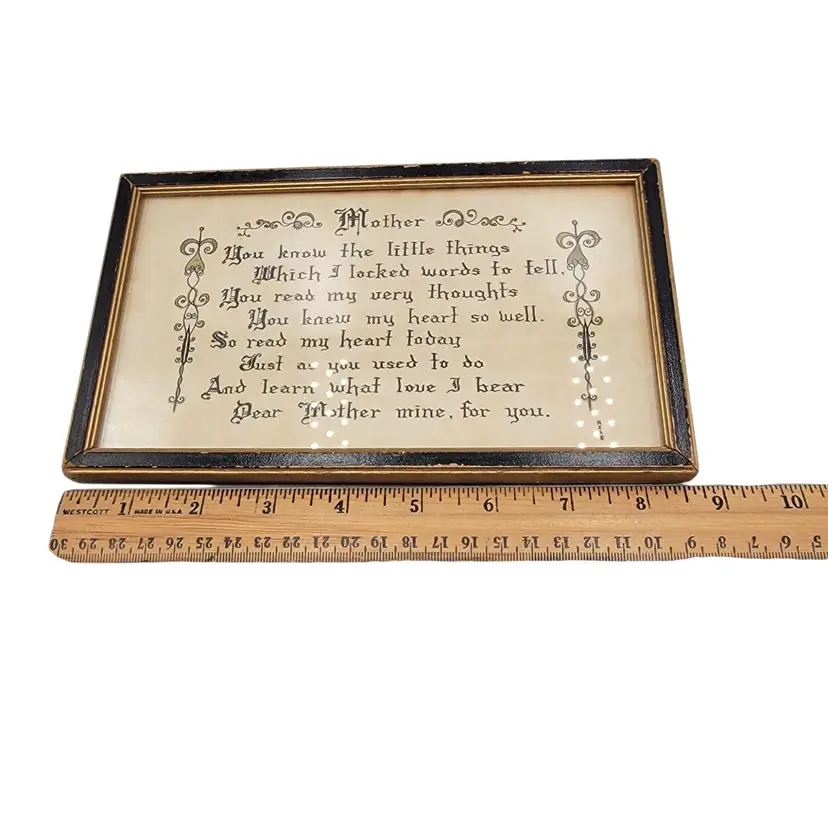 Mother
You know the little things
Which I locked words to tell,
You read my very thoughts
You knew my heart so well.
So read my heart today
Just as you used to do
And learn what love I bear
Dear Mother mine, for you.
WESTCOTT 1 MADE IN U.S.A. 2 3 4 5 6 7 8 9 10
30 29 28 27 26 25 24 23 22 21 20 19 18 17 16 15 14 13 12 11 10 9 8 7 6 5